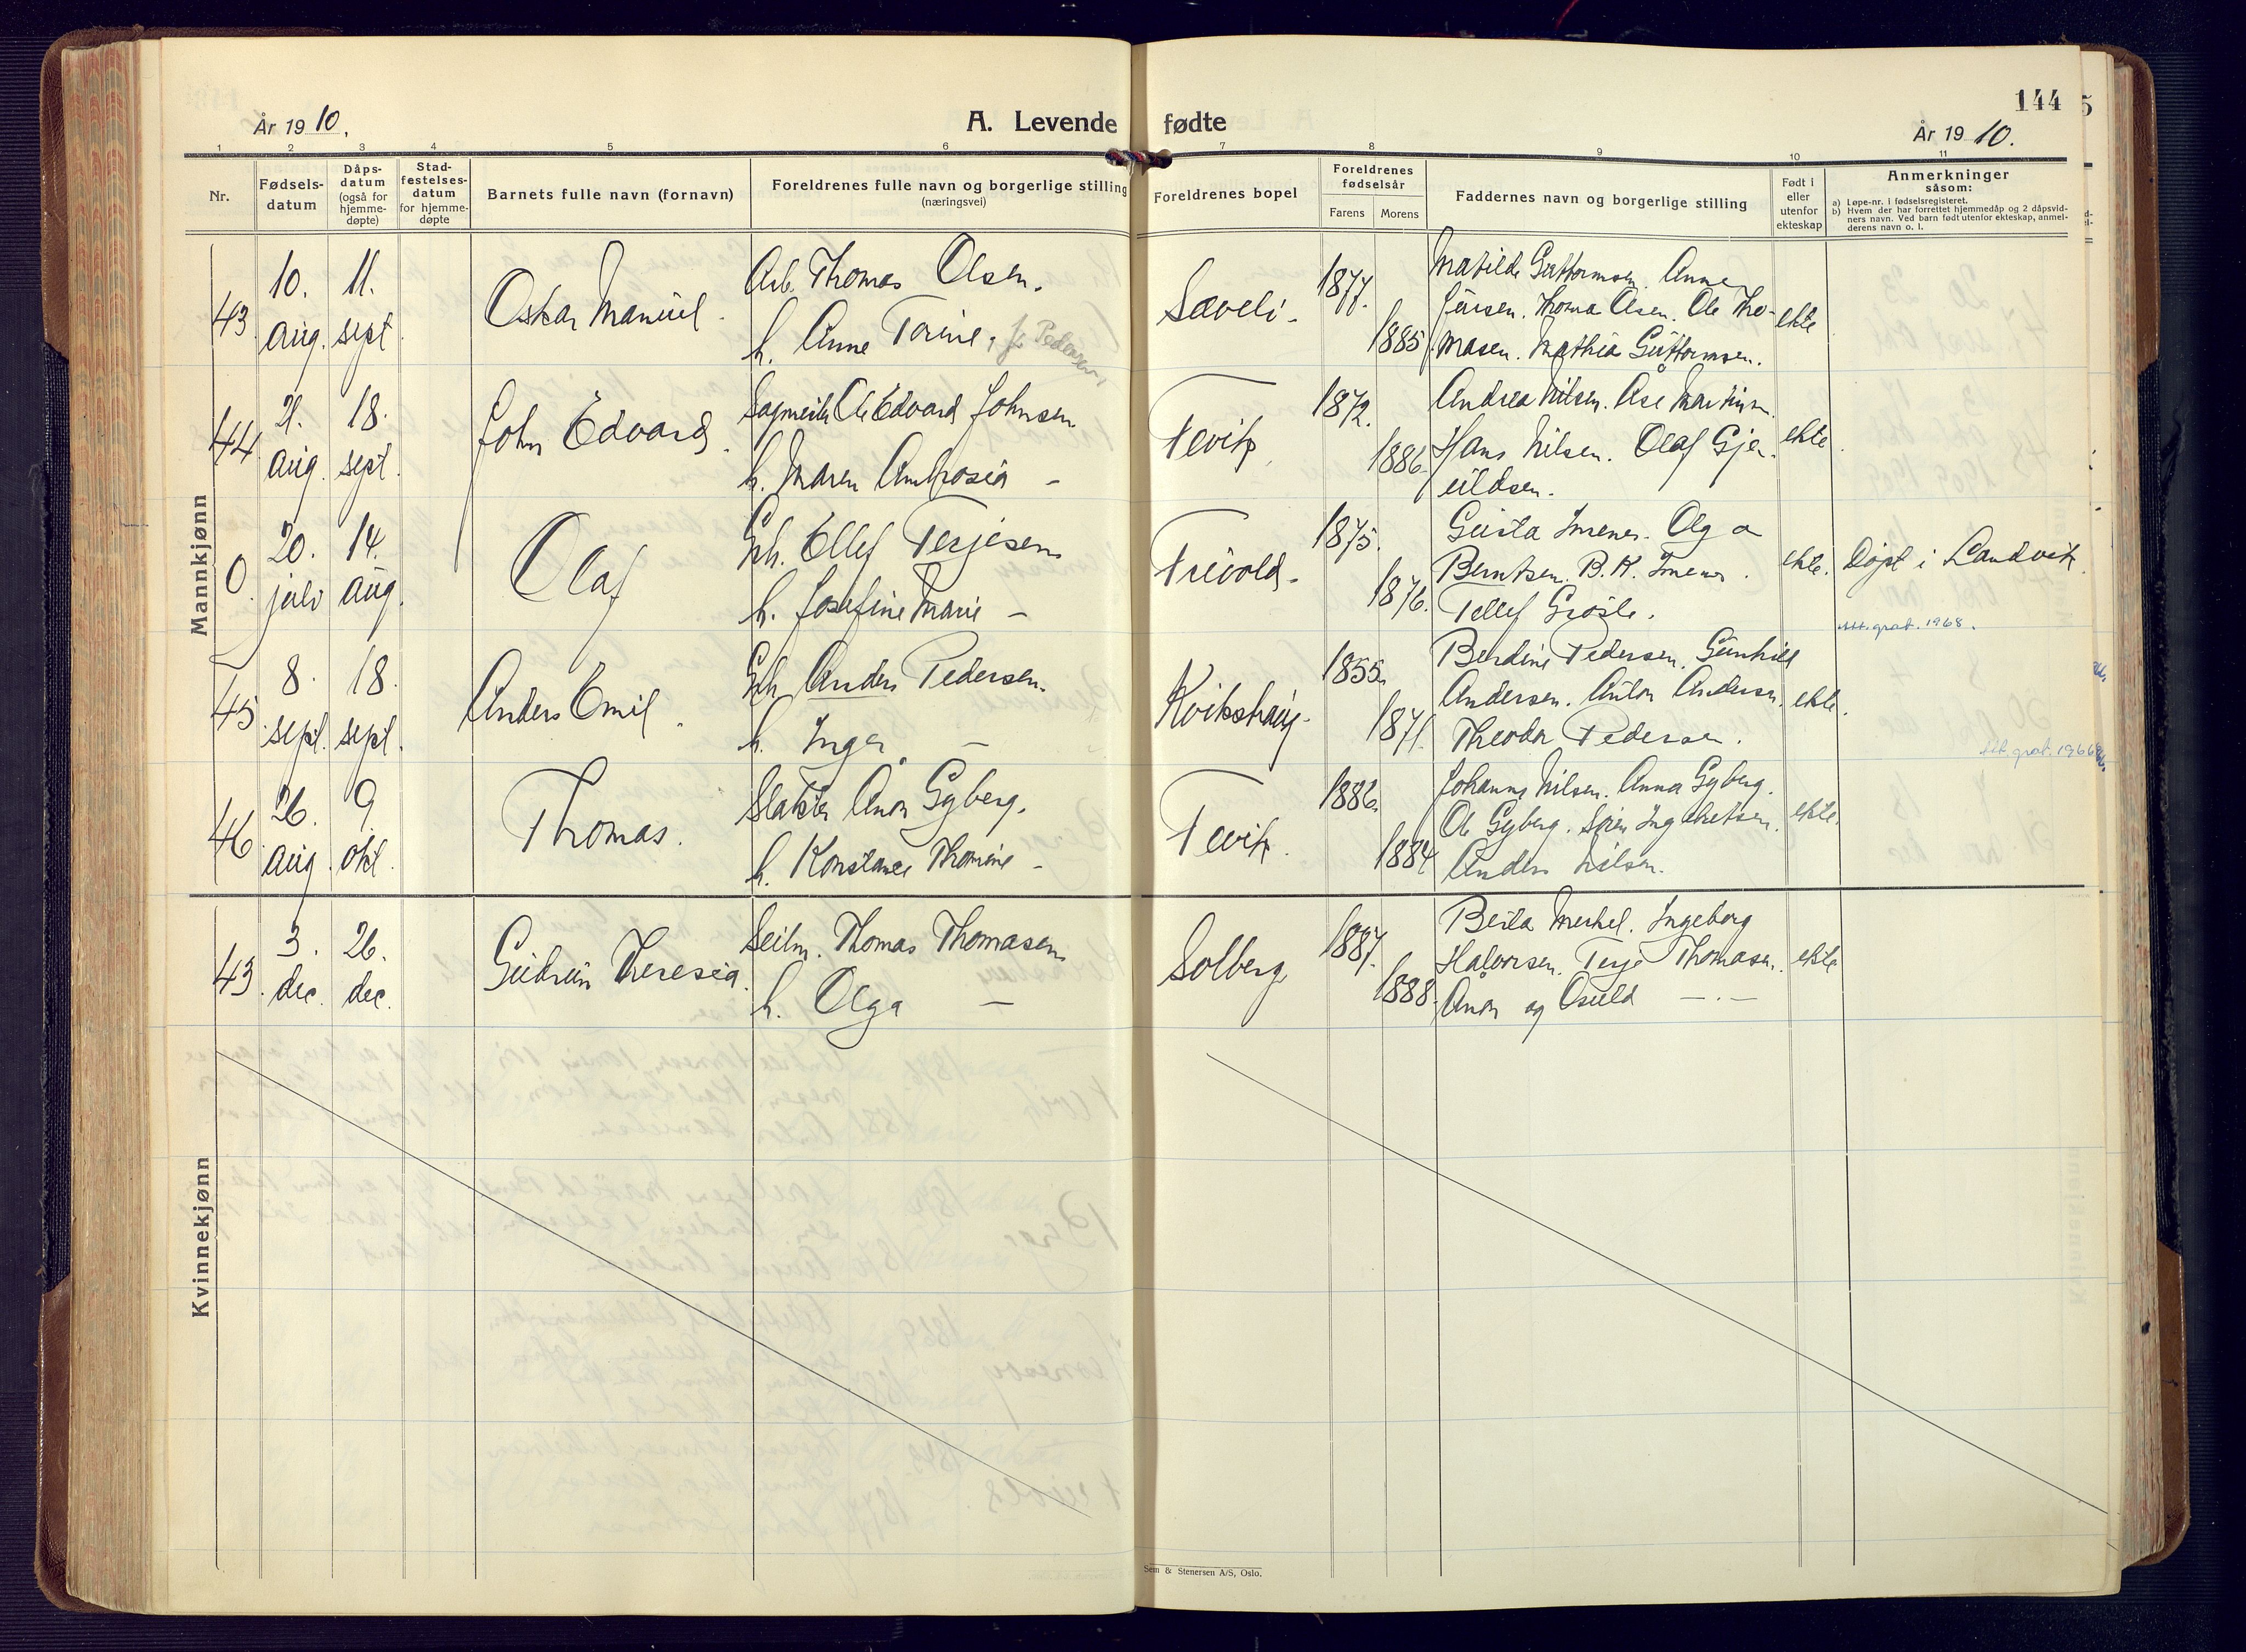 144
År 1910.
A. Levende fødte
År 1910.
1 2 3 4 5 6 7 8 9 10 11
Nr.
Fødsels-
datum
Dåps-
datum
(også for
hjemme-
døpte)
Stad-
festelses-
datum
for hjemme-
døpte
Barnets fulle navn (fornavn)
Foreldrenes fulle navn og borgerlige stilling
(næringsvei)
Foreldrenes bopel
Foreldrenes
fødselsår
Farens Morens
Faddernes navn og borgerlige stilling
Født i
eller
utenfor
ekteskap
Anmerkninger
såsom:
a) Løpe-nr. i fødselsregisteret.
b) Hvem der har forrettet hjemmedåp og 2 dåpsvid-
ners navn. Ved barn født utenfor ekteskap, anmel-
derens navn o. l.
Mannkjønn
43
10.
aug.
11.
sept
Oskar Manuel.
Arb. Thomas Olsen.
h. Anne Torine, f. Pedersen
Saveli.
1877.
1885
Matilde Guttormsen. Anne
Jensen. Thoma Olsen. Ole Tho-
masen. Mathia Guttormsen.
ekte
44
21.
aug.
18.
sept.
John Edvard.
Ole Edvard Johnsen
h. Maren Ambrosia —
Fevik
1872.
1886
Andrea Nilsen. Åse
Hans Nilsen. Olaf Gje-
uldsen.
ekte
0
20.
juli
14.
aug.
Olaf
Gbr. Ellef Terjesen
h. Josefine Marie —
Frivold.
1875.
1876.
Gusta Imenes. Olga
Berntsen. B. K. Imenes.
Tellef Grosle.
ekte.
Døpt i Landvik
45
8.
sept.
18.
sept.
Anders Emil.
Gbr. Anders Pedersen.
h. Inga —
Kvikshaug.
1855.
1871.
Att. grat. 1968.
Berdine Pedersen. Gunhild
Andersen. Anton Andersen.
Theodor Pedersen.
ekte.
46
26.
aug.
9
okt.
Thomas.
Slakter Anon Gyberg.
h. Konstance Thomine —
Fevik.
1886.
1884
Att. grat. 1966
Johanne Nilsen. Anna Gyberg.
Ole Gyberg. Søren Ingebretsen.
Anders Nilsen.
ekte.
Kvinnekjønn
43.
3.
dec.
26.
dec.
Gudrun Theresia.
Seilm. Thomas Thomasen
h. Olga —
Solberg
1887.
1888.
Berta Merkel. Ingeborg
Halvorsen. Terje Thomasen.
Anon og Osuld — . —
ekte
Sem & Stenersen A/S, Oslo.